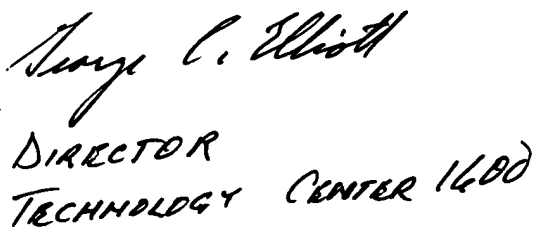 George C. Elliott
DIRECTOR
TECHNOLOGY CENTER 1600